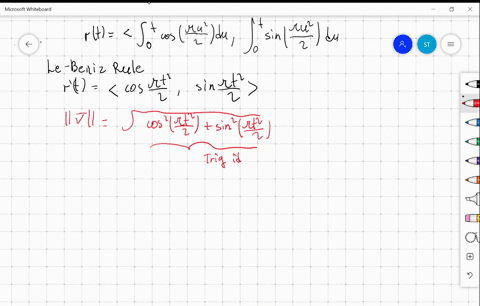 Microsoft Whiteboard
r(t) = < ∫₀ᵗ cos(πu²/2) du, ∫₀ᵗ sin(πu²/2) du
ST
Le-Beniz Rule
r'(t) = < cos πt²/2 , sin πt²/2 >
||v|| = √(cos²(πt²/2) + sin²(πt²/2))
Trig id